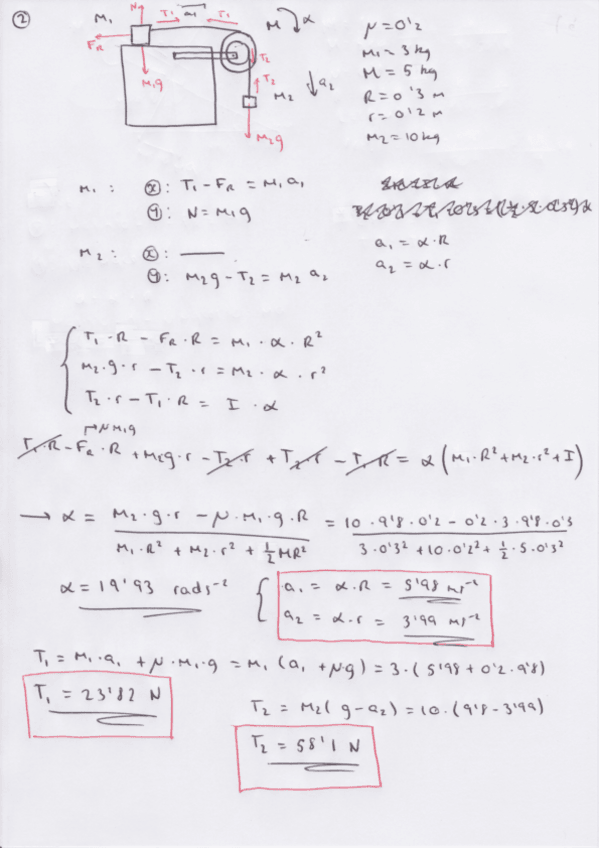 ②
N
T₁
a₁
T₁
M₁
F_R
M₁g
M
α
T₂
T₂
a₂
M₂
M₂g
μ = 0'2
M₁ = 3 kg
M = 5 kg
R = 0'3 m
r = 0'2 m
M₂ = 10 kg
M₁ : ⓧ: T₁ - F_R = M₁a₁
ⓨ: N = M₁g
a₁ = α·R
M₂ : ⓧ: —
a₂ = α·r
ⓨ: M₂g - T₂ = M₂ a₂
T₁·R - F_R·R = M₁·α·R²
M₂·g·r - T₂·r = M₂·α·r²
T₂·r - T₁·R = I·α
→μM₁g
T₁·R - F_R·R + M₂g·r - T₂·r + T₂·r - T₁·R = α(M₁·R² + M₂·r² + I)
→ α = M₂·g·r - μ·M₁·g·R / M₁·R² + M₂·r² + ½MR² = 10·9'8·0'2 - 0'2·3·9'8·0'3 / 3·0'3² + 10·0'2² + ½·5·0'3²
α = 19'93 rads⁻²
a₁ = α·R = 5'98 ms⁻²
a₂ = α·r = 3'99 ms⁻²
T₁ = M₁·a₁ + μ·M₁·g = M₁(a₁ + μg) = 3·(5'98 + 0'2·9'8)
T₁ = 23'82 N
T₂ = M₂(g - a₂) = 10·(9'8 - 3'99)
T₂ = 58'1 N